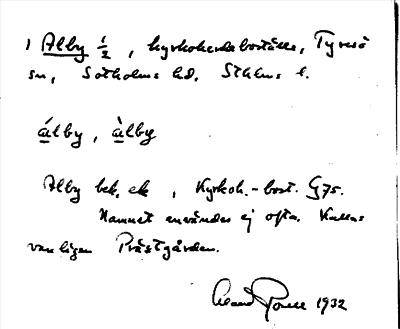 1 Alby 1/2, kyrkoherdeboställe, Tyresö
sn, Sotholms hd, Sthlms l.
álby, àlby
Alby bek. ek, Kyrkoh.-bost. G75.
Namnet användes ej ofta. Kallas
vanligen Prästgården.
1932